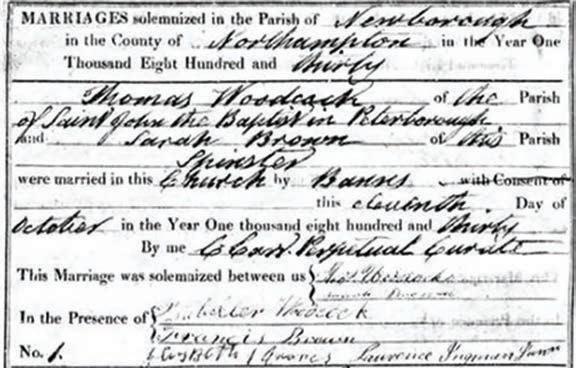 MARRIAGES solemnized in the Parish of Newborough
in the County of Northampton in the Year One
Thousand Eight Hundred and thirty
Thomas Woodcock of the Parish
of Saint John the Baptist in Peterborough
and Sarah Brown of this Parish
Spinster
were married in this Church by Banns with Consent of
this eleventh Day of
October in the Year One thousand eight hundred and thirty
By me C Carr Perpetual Curate
This Marriage was solemnized between us { Thos Woodcock
Brown
In the Presence of {
Francis Brown
No. 1. Graves Laurence Ingman